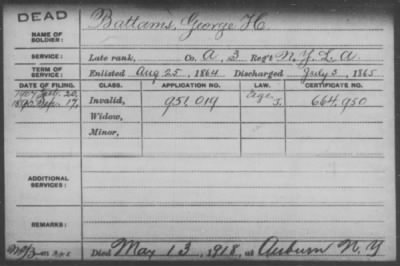 DEAD
NAME OF SOLDIER: Battams, George H.
SERVICE: Late rank, Co. A, 3 Reg't N.Y.L.A.
TERM OF SERVICE: Enlisted Aug 25, 1864 Discharged July 3, 1865
DATE OF FILING. CLASS. APPLICATION NO. LAW. CERTIFICATE NO.
20, Age
17, Invalid, 951.019 J. 664.950
Widow,
Minor,
ADDITIONAL SERVICES:
REMARKS:
Died May 13, 1918, at Auburn N.Y